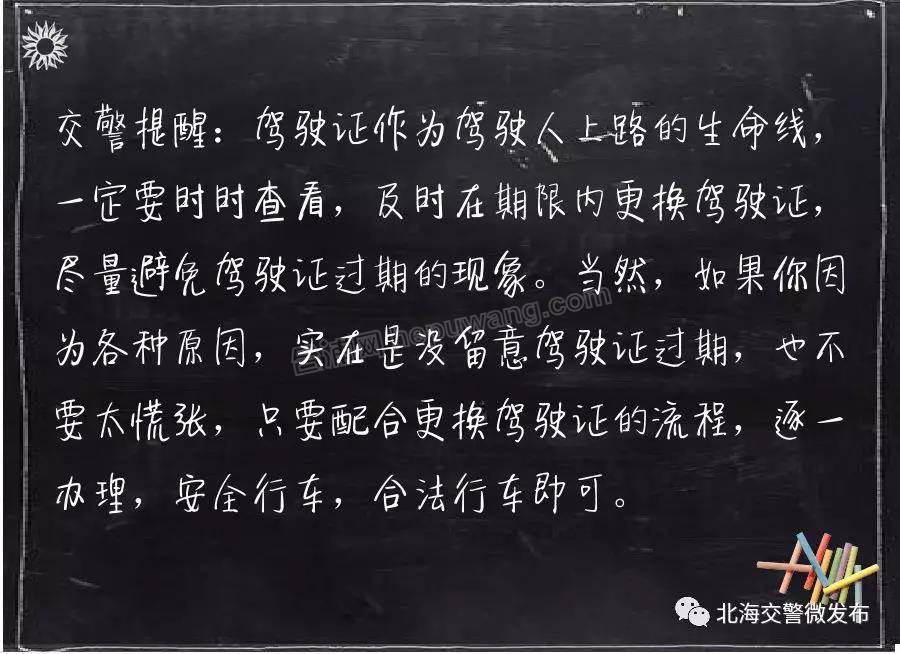 交警提醒：驾驶证作为驾驶人上路的生命线，
一定要时时查看，及时在期限内更换驾驶证，
尽量避免驾驶证过期的现象。当然，如果你因
为各种原因，实在是没留意驾驶证过期，也不
要太慌张，只要配合更换驾驶证的流程，逐一
办理，安全行车，合法行车即可。
北海交警微发布